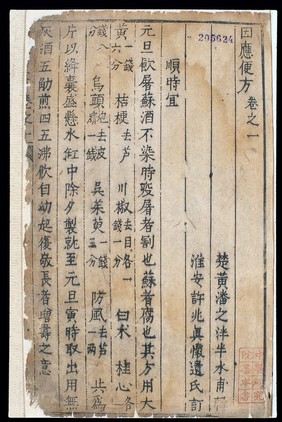 205624
因應便方 卷之一
楚黃潘之泮半水甫
淮安許兆 懷遺氏訂
順時宜
元旦飲屠蘇酒不染時疫屠者割也蘇者腐也其方用大
黃一錢六分 桔梗去芦 川椒去目各一錢一分 白朮 桂心各
錢八分 烏頭炮去皮 一錢 吳茱萸一錢三分 防風去芦一兩 共為
片以絳囊盛懸水缸中除夕製就至元旦寅時取出用無
灰酒五觔煎四五沸飲自幼起後敬長者增壽之意